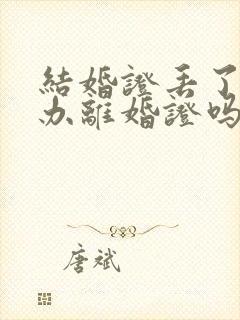 結婚證丢了
办離婚證吗
唐斌